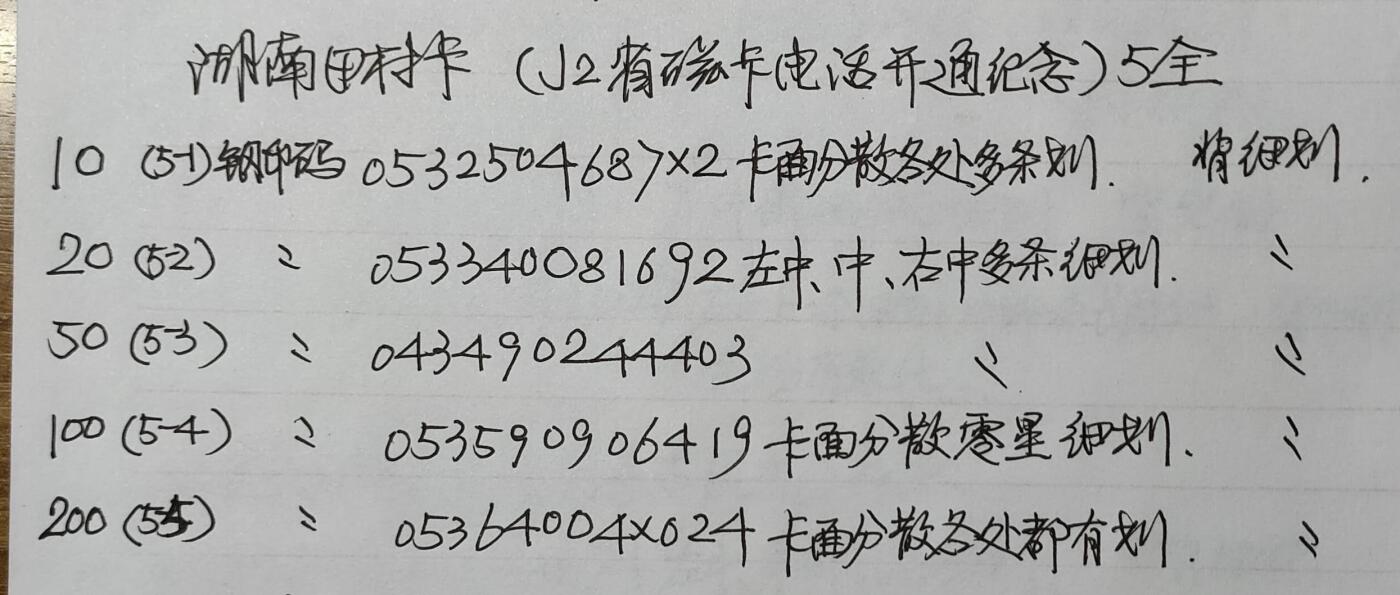 湖南田村卡 (J2省磁卡电话开通纪念) 5全
10 (5-1) 钢印码 0532504687×2 卡面分散各处多条划. 背细划.
20 (5-2) 〃 053340081692 左中、中、右中多条细划. 〃
50 (5-3) 〃 043490244403 〃 〃
100 (5-4) 〃 053590906419 卡面分散零星细划. 〃
200 (5-5) 〃 05364004×024 卡面分散各处都有划. 〃